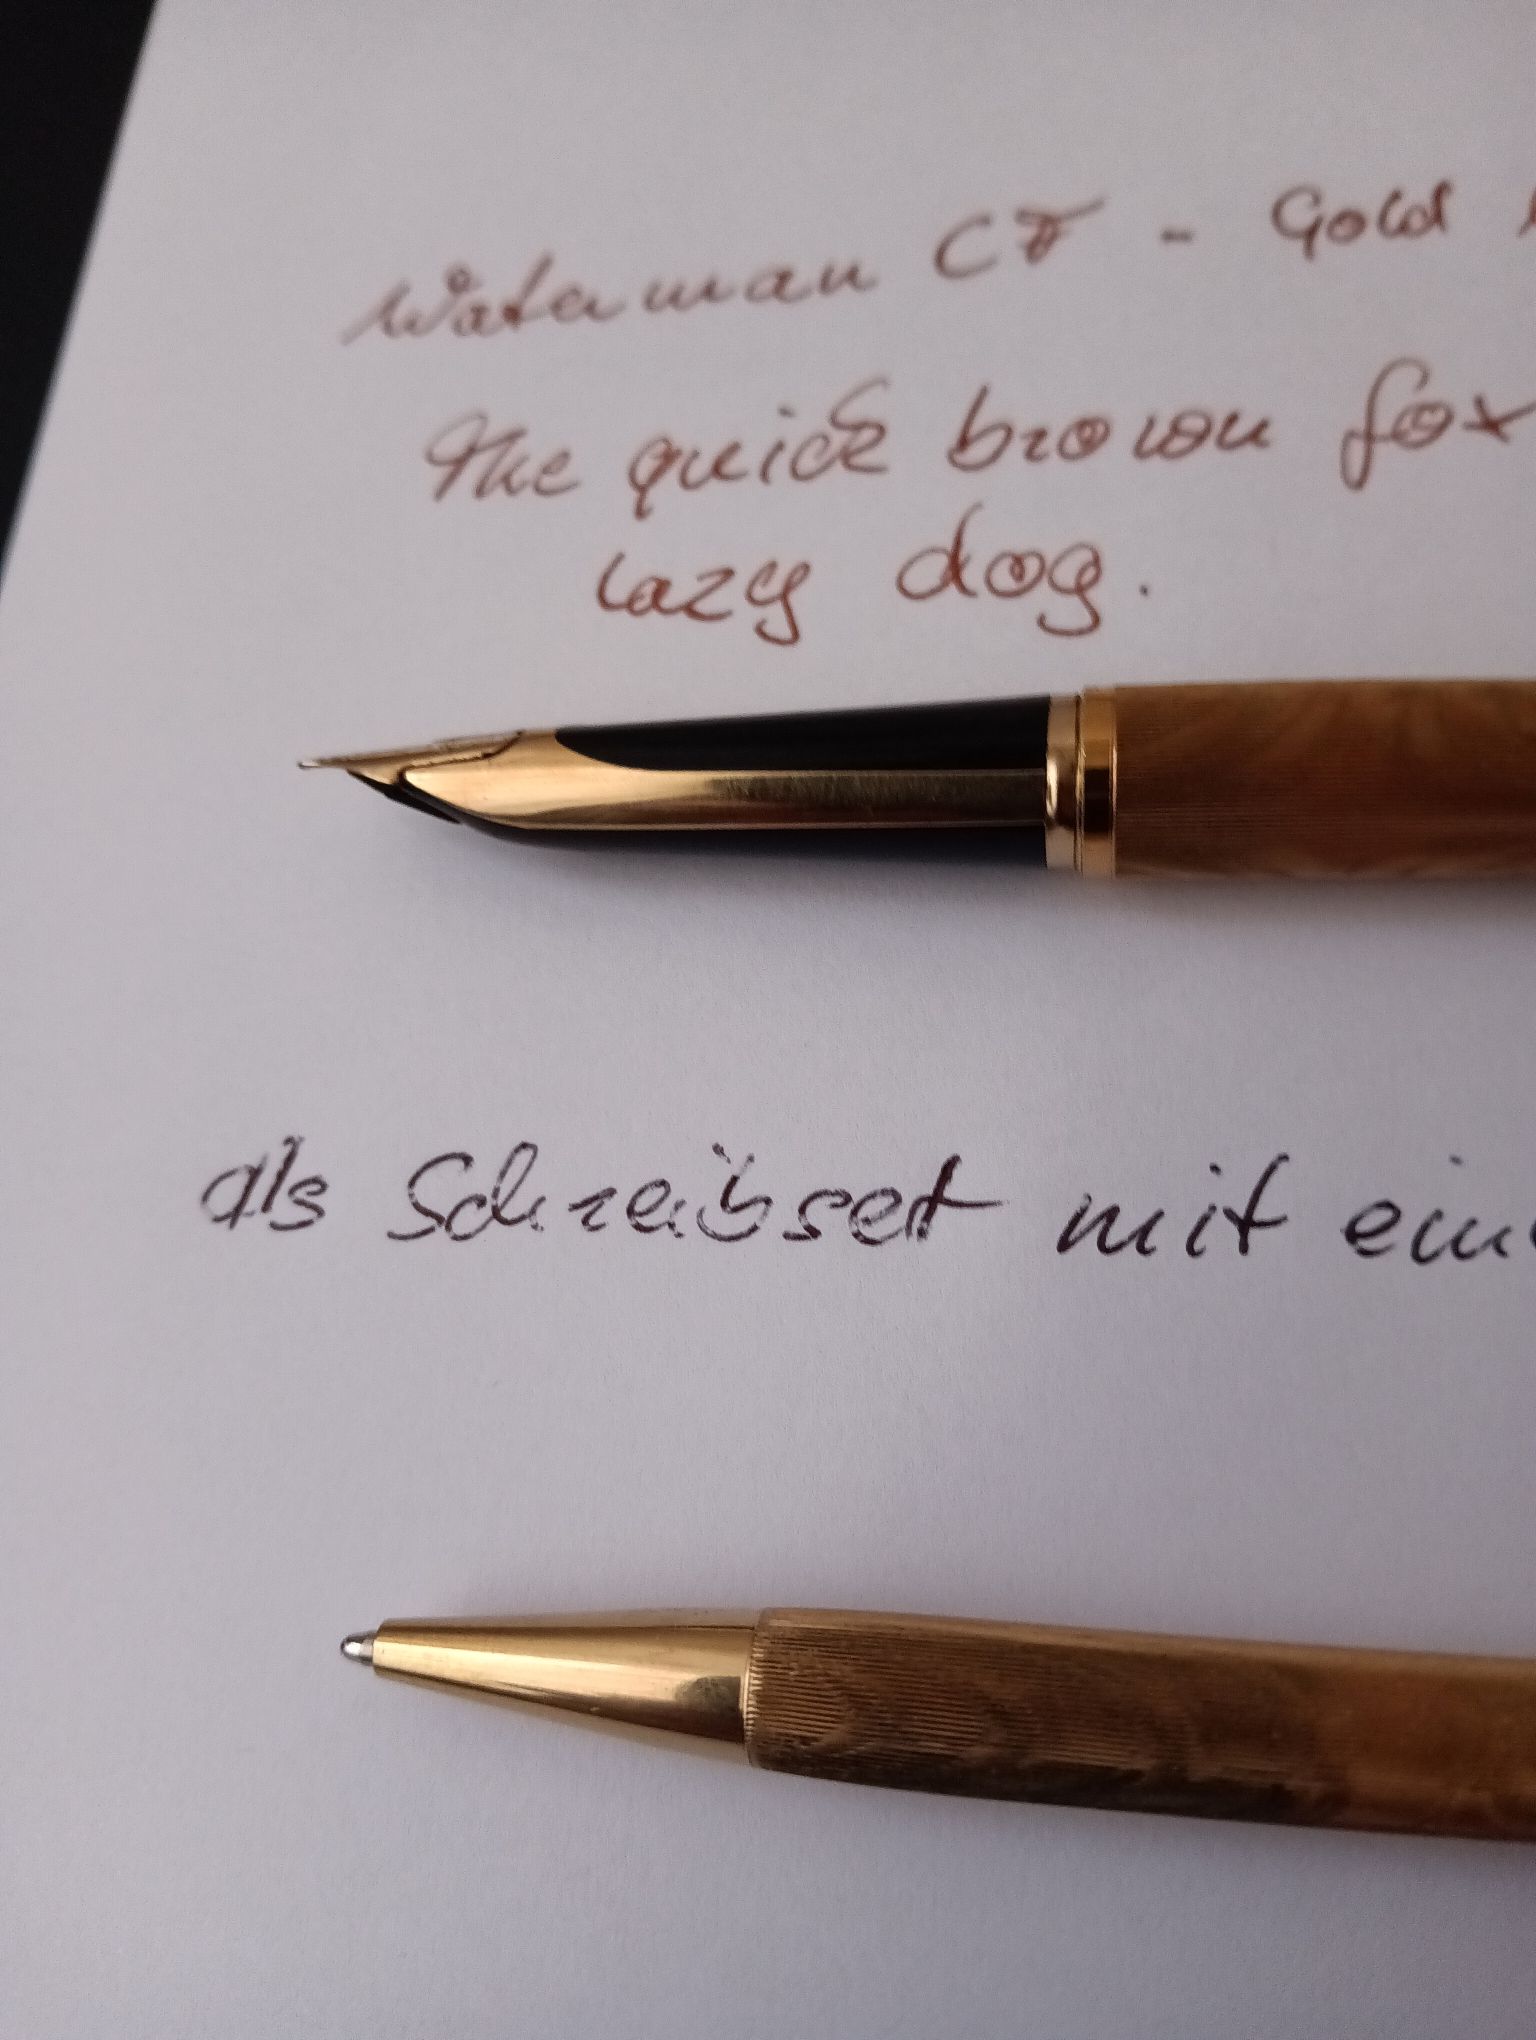 Waterman CF - Gold
The quick brown fox
lazy dog.
als Schreibset mit eine